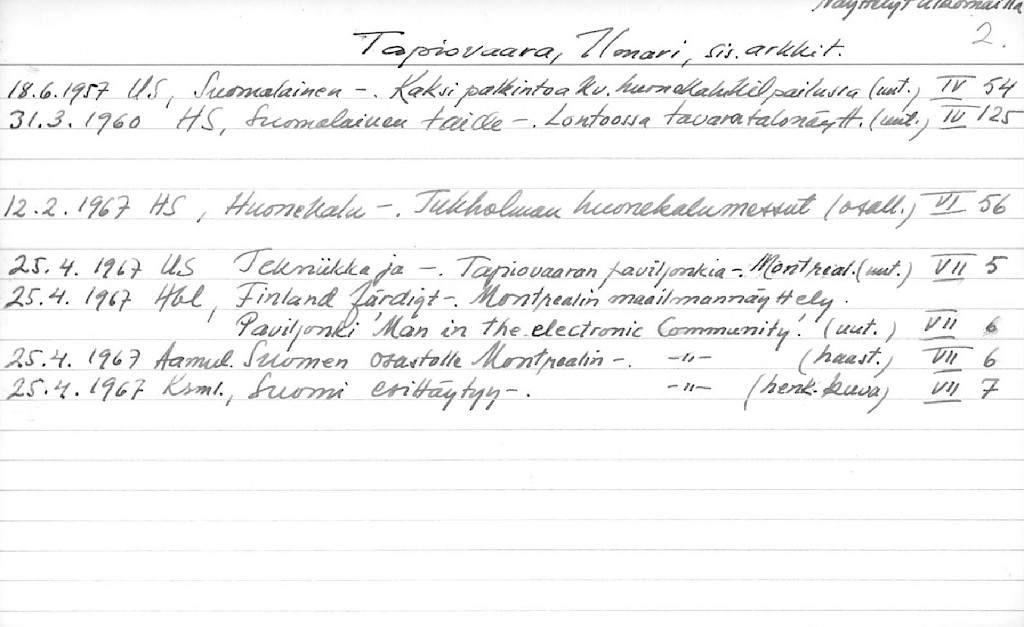 Näyttelyt ulkomailla
2.
Tapiovaara, Ilmari, sis. arkkit.
18.6.1957 US, Suomalainen -. Kaksi palkintoa kv. huonekalukilpailussa (uut.) IV 54
31.3.1960 HS, Suomalainen taide -. Lontoossa tavaratalonäytt. (uut.) IV 125
12.2.1967 HS, Huonekalu -. Tukholman huonekalumessut (osall.) VI 56
25.4.1967 US Tekniikka ja -. Tapiovaaran paviljonkia -. Montreal. (uut.) VII 5
25.4.1967 Hbl, Finland färdigt -. Montrealin maailmannäyttely.
Paviljonki 'Man in the electronic Community'. (uut.) VII 6
25.4.1967 Aamul. Suomen osastolle Montrealin -. -"- (haast.) VII 6
25.4.1967 Ksml., Suomi esittäytyy -. -"- (henk.kuva) VII 7